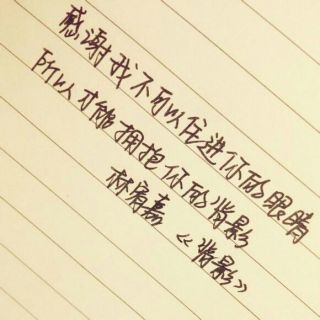 感谢我不可以住进你的眼睛
所以才能拥抱你的背影
林宥嘉《背影》